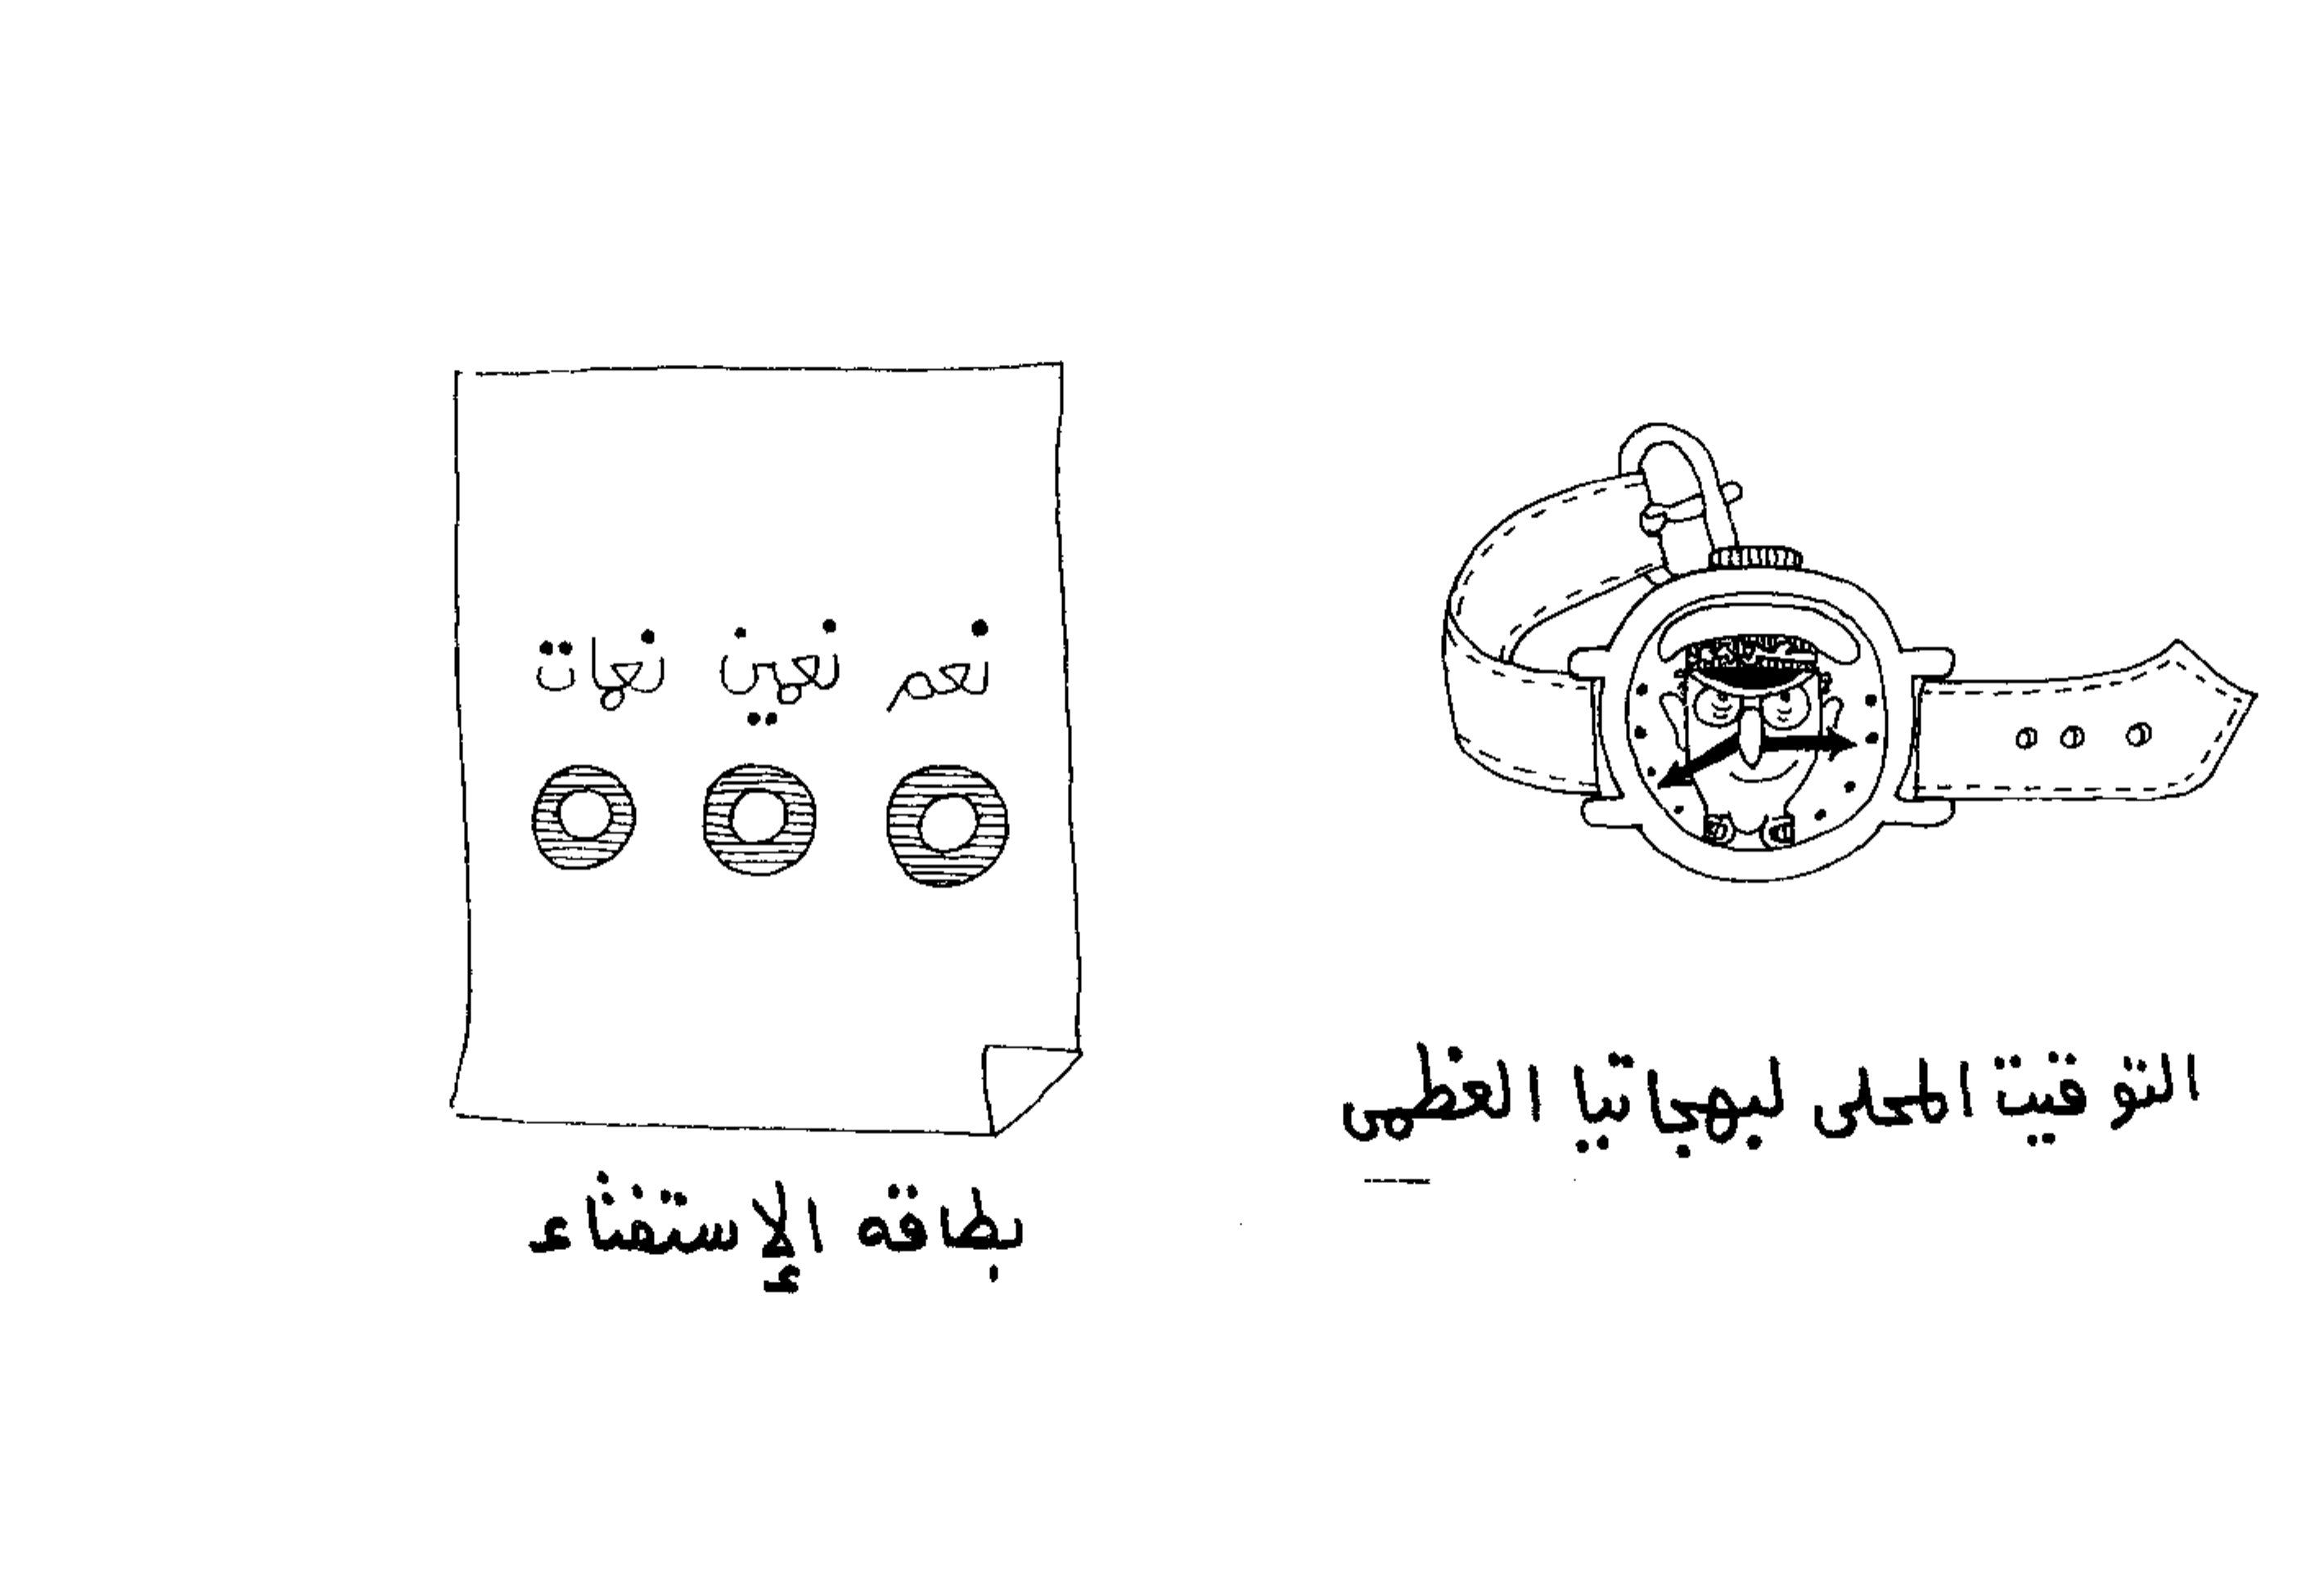 التوقيت المحلى لبهجاتيا العظمى
نعم نعمين نعمات
بطاقه الإستفتاء